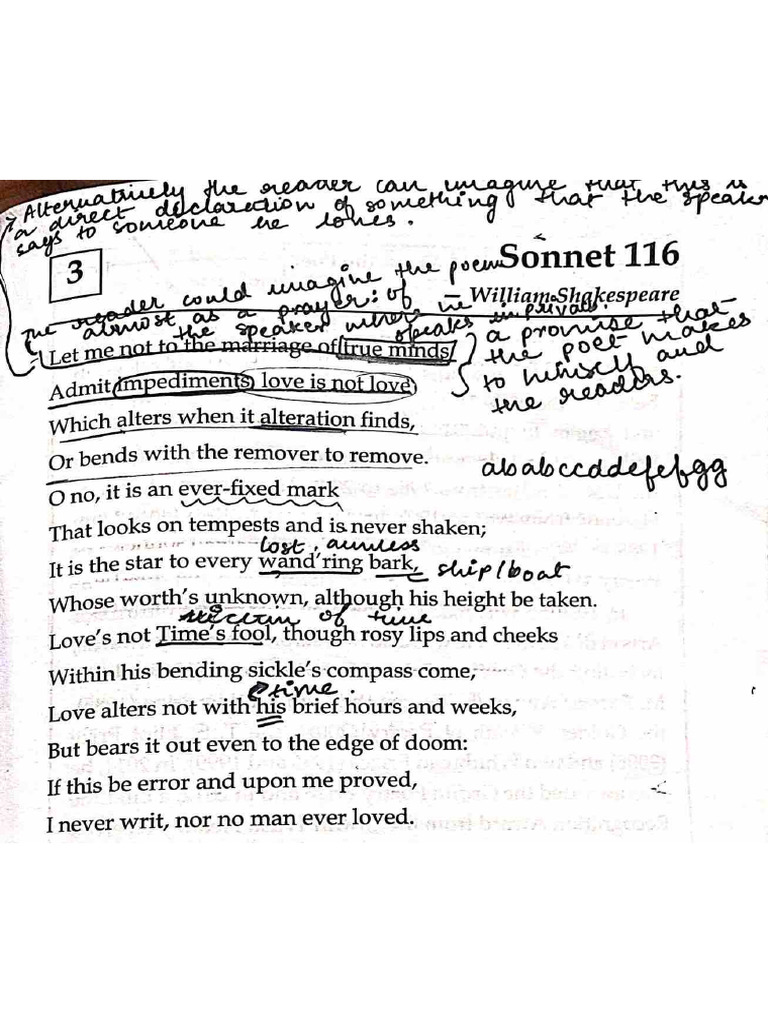 Alternatively the reader can imagine that this is
a direct declaration of something that the speaker
says to someone he loves.
3
Sonnet 116
The reader could imagine the poem
almost as a prayer: of
– William Shakespeare
the speaker where in
speaks in private.
a promise that
the poet makes
to himself and
the readers.
Let me not to the marriage of true minds
Admit impediments, love is not love
Which alters when it alteration finds,
Or bends with the remover to remove.
ababccddefefgg
O no, it is an ever-fixed mark
That looks on tempests and is never shaken;
lost, aimless
It is the star to every wand'ring bark, ship/boat
Whose worth's unknown, although his height be taken.
of time
Love's not Time's fool, though rosy lips and cheeks
Within his bending sickle's compass come,
time.
Love alters not with his brief hours and weeks,
But bears it out even to the edge of doom:
If this be error and upon me proved,
I never writ, nor no man ever loved.